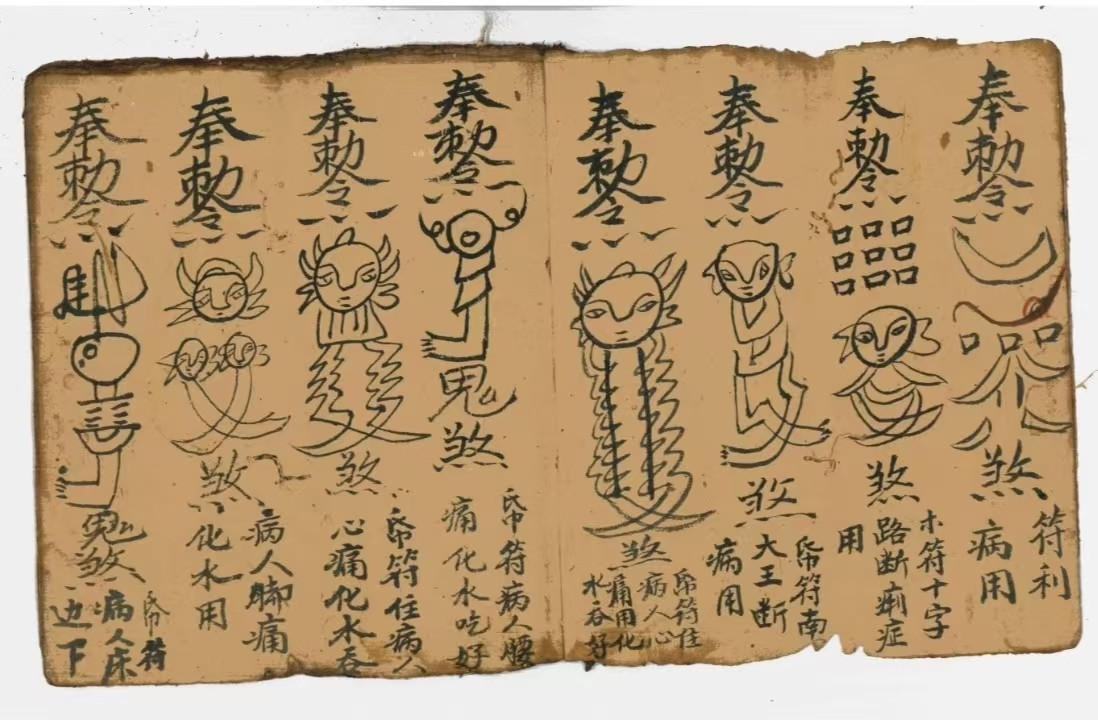 奉勅令
煞
符利
病用
奉勅令
口口口
口口口
口口口
煞
木符十字
路断痢症
用
奉勅令
煞
帋符南
大王断
病用
奉勅令
煞
帋符住
病人心
痛用化
水吞好
奉勅令
鬼
煞
帋符病人腰
痛化水吃好
奉勅令
煞
帋符住病人
心痛化水吞
奉勅令
煞
病人脚痛
化水用
奉勅令
鬼
煞
帋符
病人床
边下